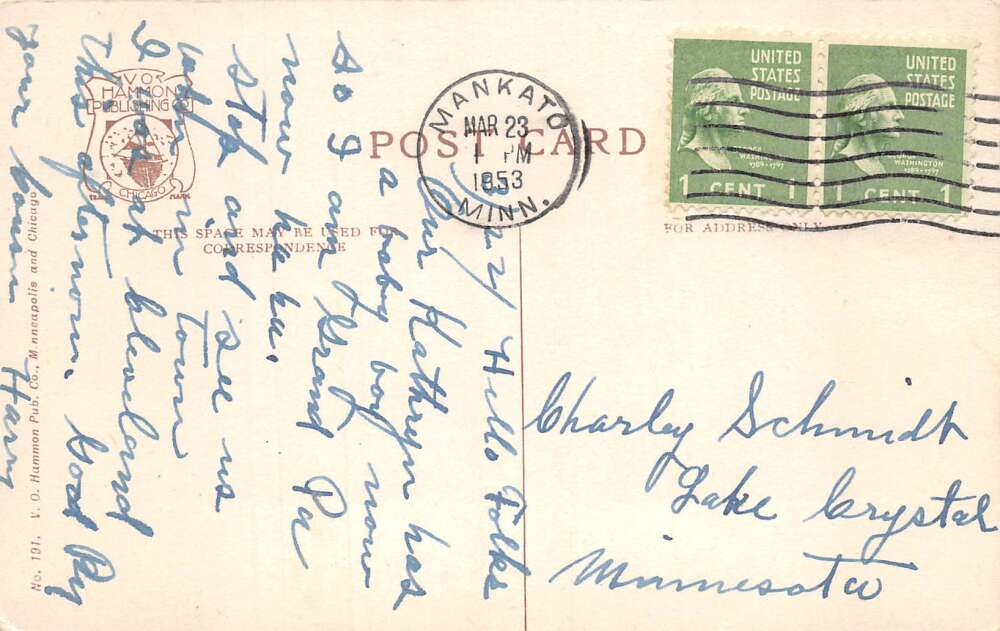 V.O.
HAMMOND
PUBLISHING CO
CHICAGO
TRADE MARK
POST CARD
THIS SPACE MAY BE USED FOR
CORRESPONDENCE
FOR ADDRESS ONLY
MANKATO
MAR 23
1 PM
1953
MINN.
UNITED
STATES
POSTAGE
GEORGE
WASHINGTON
1789-1797
1 CENT 1
UNITED
STATES
POSTAGE
GEORGE
WASHINGTON
1789-1797
1 CENT 1
Charley Schmidt
Lake Crystal
Minnesota
22/ Hello Folks
Our Kathryn has
a baby boy now
so I am Grand Pa
now ha ha.
stop and see us
when in town
I am at Cleveland
this afternoon. Good By
your cousin Harry
No. 191. V. O. Hammon Pub. Co., Minneapolis and Chicago